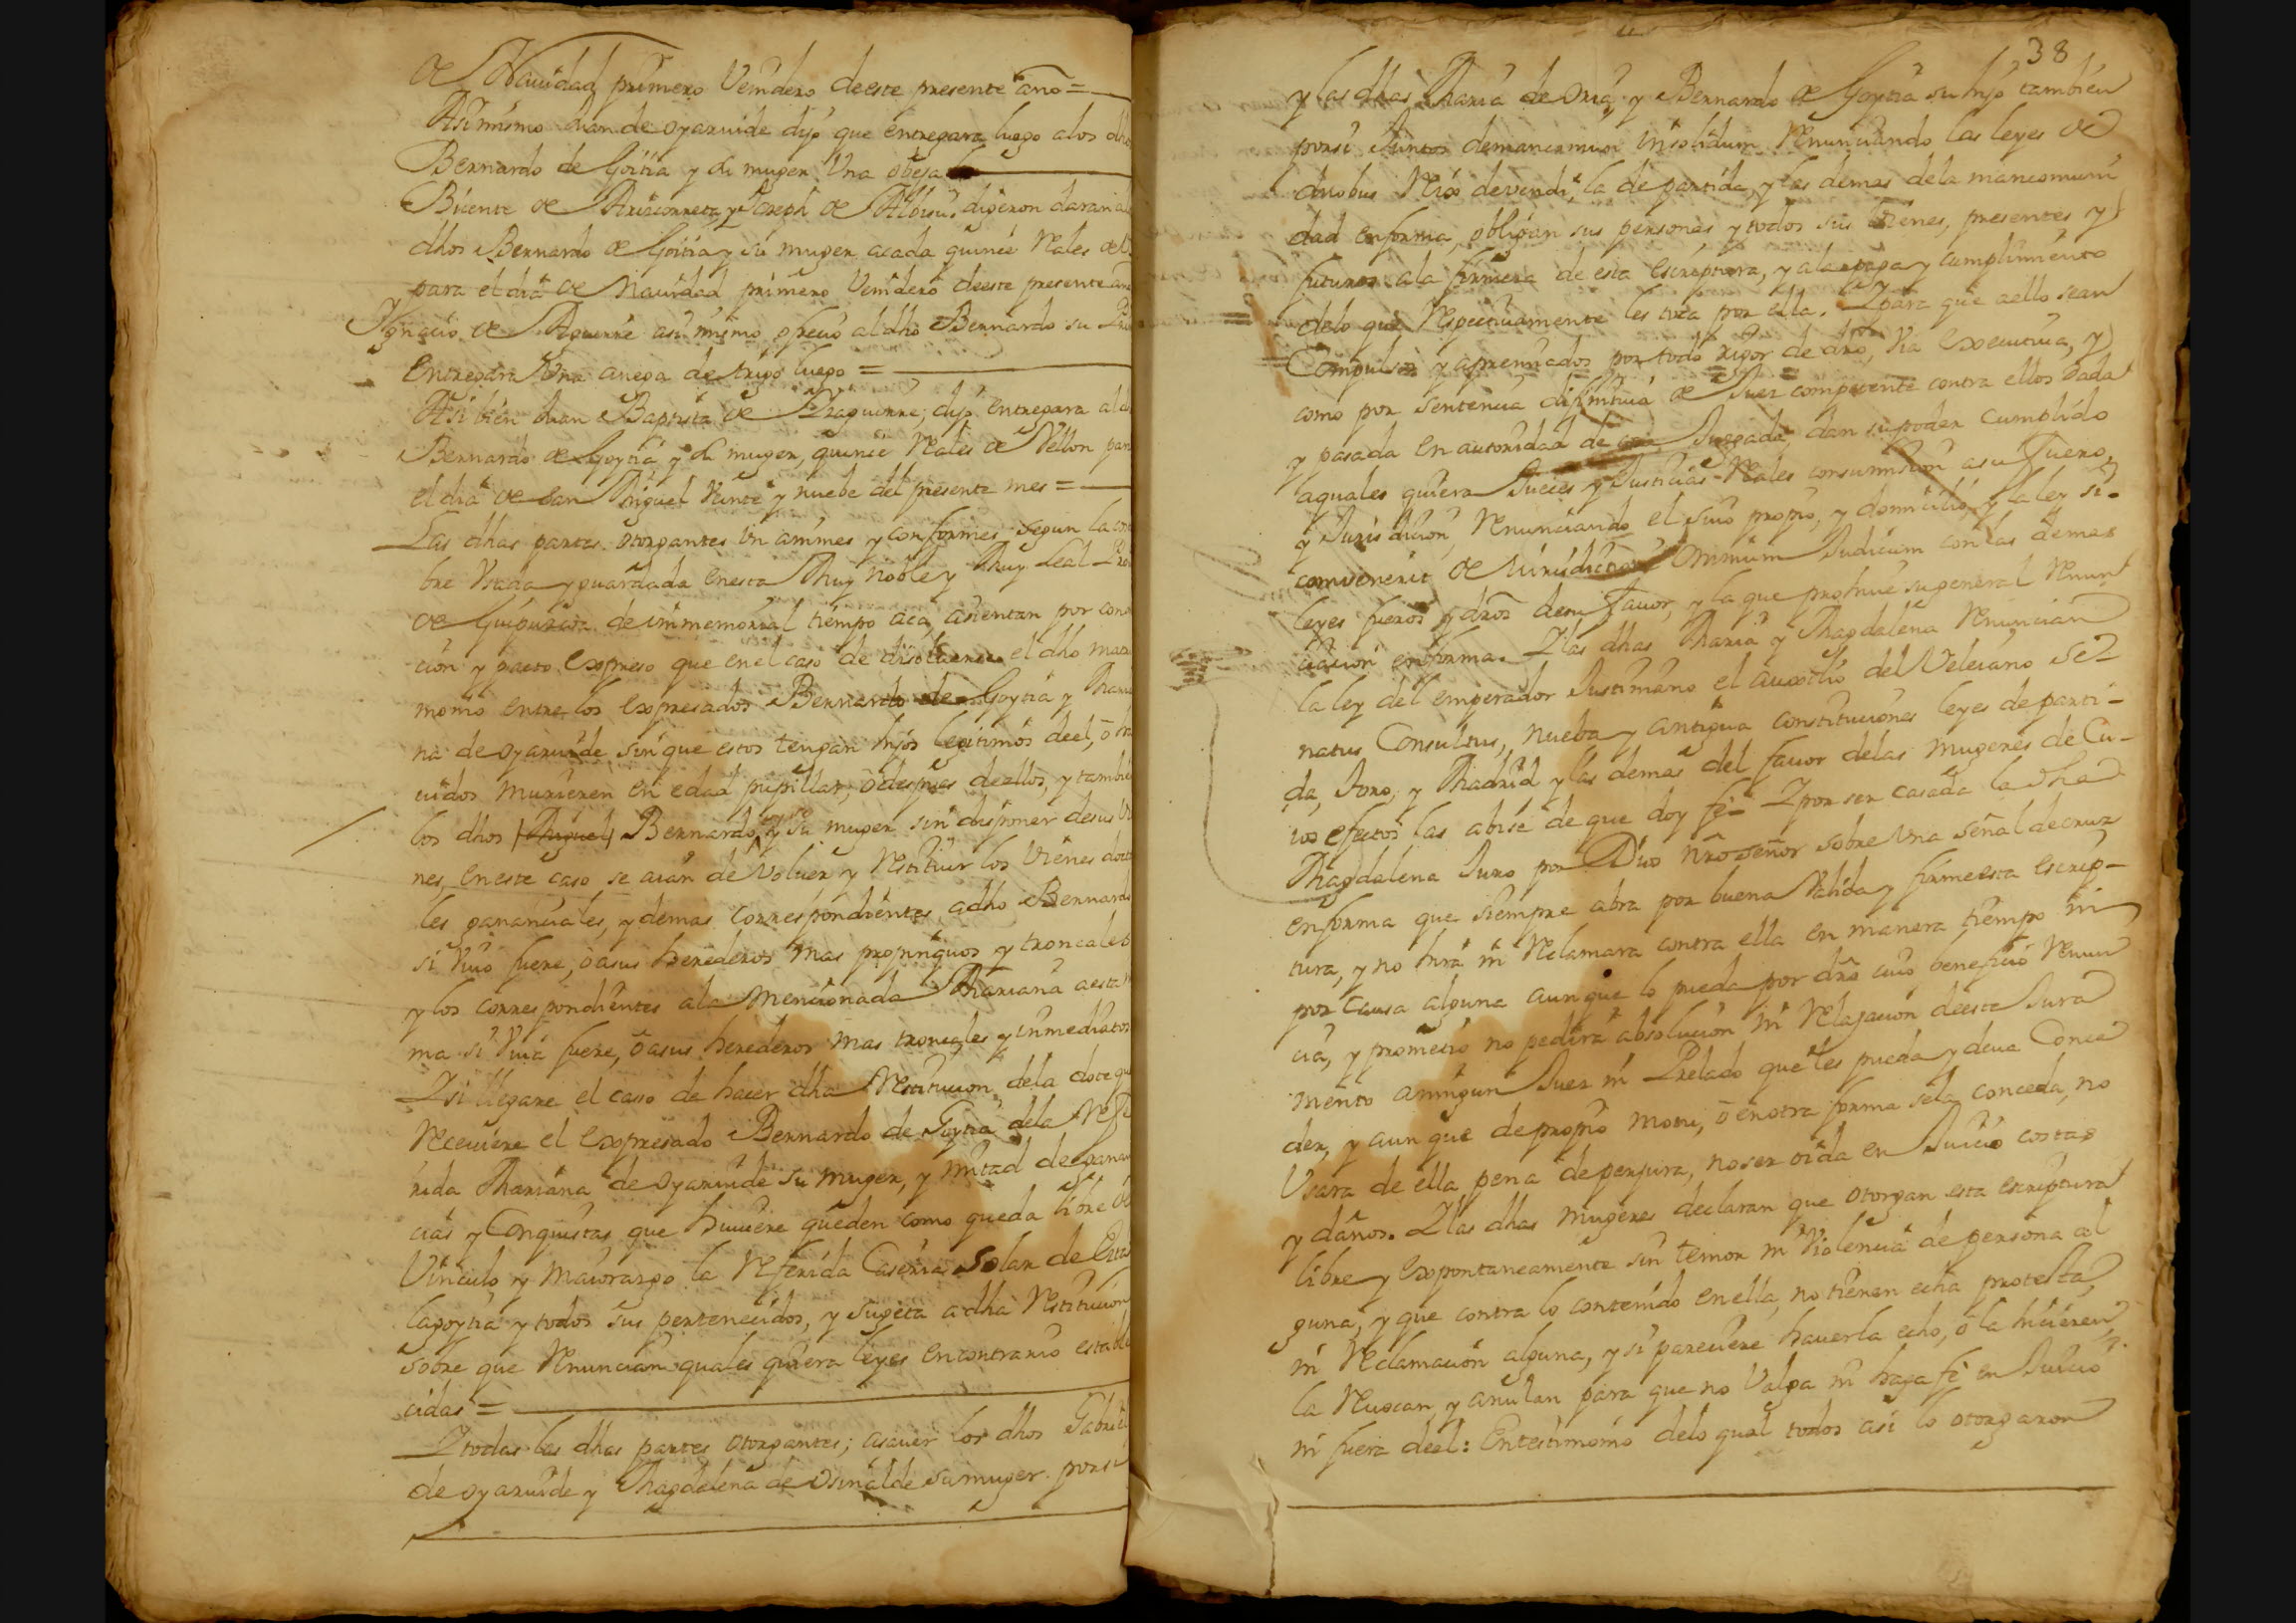 de Nauidad primero Venidero deeste presente año =
Asimismo Juan de oyaruide dijo que entregara luego alos dhos
Bernardo de Goitia y su muger Una obeja
Bicente de Ariscorreta, y Joseph de Albisu, digeron daran a
dhos Bernardo de Goitia y su muger acada quince Rales de
para el dia de Nauidad primero Venidero deeste presente año
Ygnacio de Aguirre asi mismo ofrecio al dho Bernardo su
Entregara Una anega de trigo luego =
Asi bien Juan Baptista de Yraguirre, dijo entregara al
Bernardo de Goytia y su muger, quince Rales de Vellon para
el dia de San Miguel Veinte y nuebe del presente mes =
Las dhas partes otorgantes Un animes y conformes segun la
bre Vsada y guardada enesta Muy noble y Muy Leal
de Guipuzcoa de immemorial tiempo aca, asientan por
cion y pacto Expreso que enel caso de disoluerse el dho matri
monio entre los Expresados Bernardo de Goytia y Maria
na de oyaruide sin que estos tengan hijos legitimos deel, o
cidos murieren en edad pupillar, o despues deellos, y tambien
los dhos Miguel Bernardo, y su muger sin disponer desus Vie
nes, eneste caso se aian de Voluer y Restituir los Vienes dota
les gananciales, y demas correspondientes adho Bernardo
si Viuo fuere, o asus herederos mas propinquos y troncales
y los correspondientes ala mencionada Mariana aesta
ma si Viua fuere, o asus herederos mas troncales y inmediatos
Y si llegare el caso de hacer dha Restitucion, dela dote que
Receuiere el Expresado Bernardo de Goytia dela Refe
rida Mariana de oyaruide su muger, y mitad de ganan
cias y Conquistas que huuiere queden como queda libre de
Vinculo y Maiorazgo la Referida Caseria Solar de
lagoytia y todos sus pertenecidos, y sugeta adha Restitucion
sobre que Renuncian quales quiera leyes encontrario estable
cidas =
Y todas las dhas partes otorgantes; asauer los dhos Gabriel
de oyaruide y Magdalena de Osinalde su muger por si
38
y las dhas Maria de Oria, y Bernardo de Goytia su hijo tambien
porsi Juntos demancomun insolidum Renunciando las leyes de
duobus Reis devendi, la de partida, y las demas dela mancomuni
dad enforma, obligan sus personas y todos sus bienes, presentes y
futuros ala firmeza de esta Escriptura, y ala paga y cumplimiento
delo que Respectiuamente les toca por ella. Y para que aello sean
Compulsos y apremiados por todo rigor de dro, Via Executiua, y
como por sentencia difinitiua de Juez competente contra ellos dada
y pasada en autoridad de cosa Juzgada, dan su poder cumplido
aquales quiera Jueces y Justicias Rales consumision asu fuero,
y Jurisdicion, Renunciando el suio propio, y domicilio, y la ley si
convenerit de Jurisdictione Omnium Judicum con las demas
leyes fueros y dros desu fauor, y la que prohiue su general Renun
ciacion enforma. Y las dhas Maria y Magdalena Renuncian
la ley del emperador Justiniano el auxilio del Veleiano Se-
natus Consultus, nueba y antigua constituciones leyes de parti-
da, Toro, y Madrid y las demas del fauor delas mugeres de Cu-
ios efectos las abise de que doy fe = Y por ser casada la dha
Magdalena Juro por Dios nro señor sobre Una señal de cruz
enforma que siempre abra por buena Valida y firme esta escrip-
tura, y no hira ni Reclamara contra ella en manera tiempo ni
por causa alguna aunque lo pueda por dro cuio beneficio Renun
cia, y prometio no pedira absolucion ni Relajacion deesta Jura
mento aningun Juez ni Prelado que les pueda y deua Conce
der, y aun que de propio motu, o enotra forma sela conceda, no
Vsara de ella pena de perjura, noser oida en Juicio costas
y daños. Y las dhas mugeres declaran que otorgan esta escriptura
libre y Expontaneamente sin temor ni Violencia de persona al
guna, y que contra lo contenido en ella, no tienen echa protesta,
ni Reclamacion alguna, y si pareciere hauerla echo, o la hicieren
la Reuocan, y anulan para que no Valga ni haga fe en Juicio
ni fuera deel: Entestimonio delo qual todos asi lo otorgaron